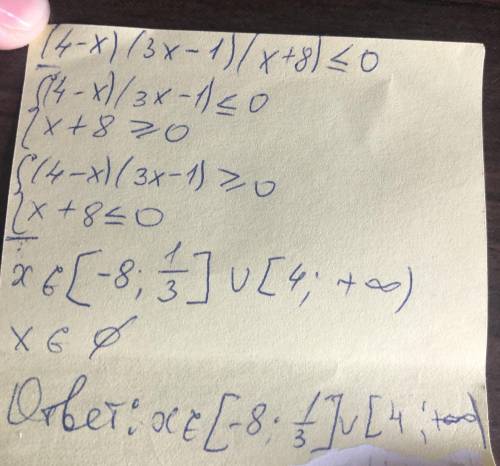 (4-x)(3x-1)(x+8)≤0
{(4-x)(3x-1)≤0
{x+8≥0
{(4-x)(3x-1)≥0
{x+8≤0
x∈[-8; 1/3]∪[4; +∞)
x∈∅
Ответ: x∈[-8; 1/3]∪[4; +∞)